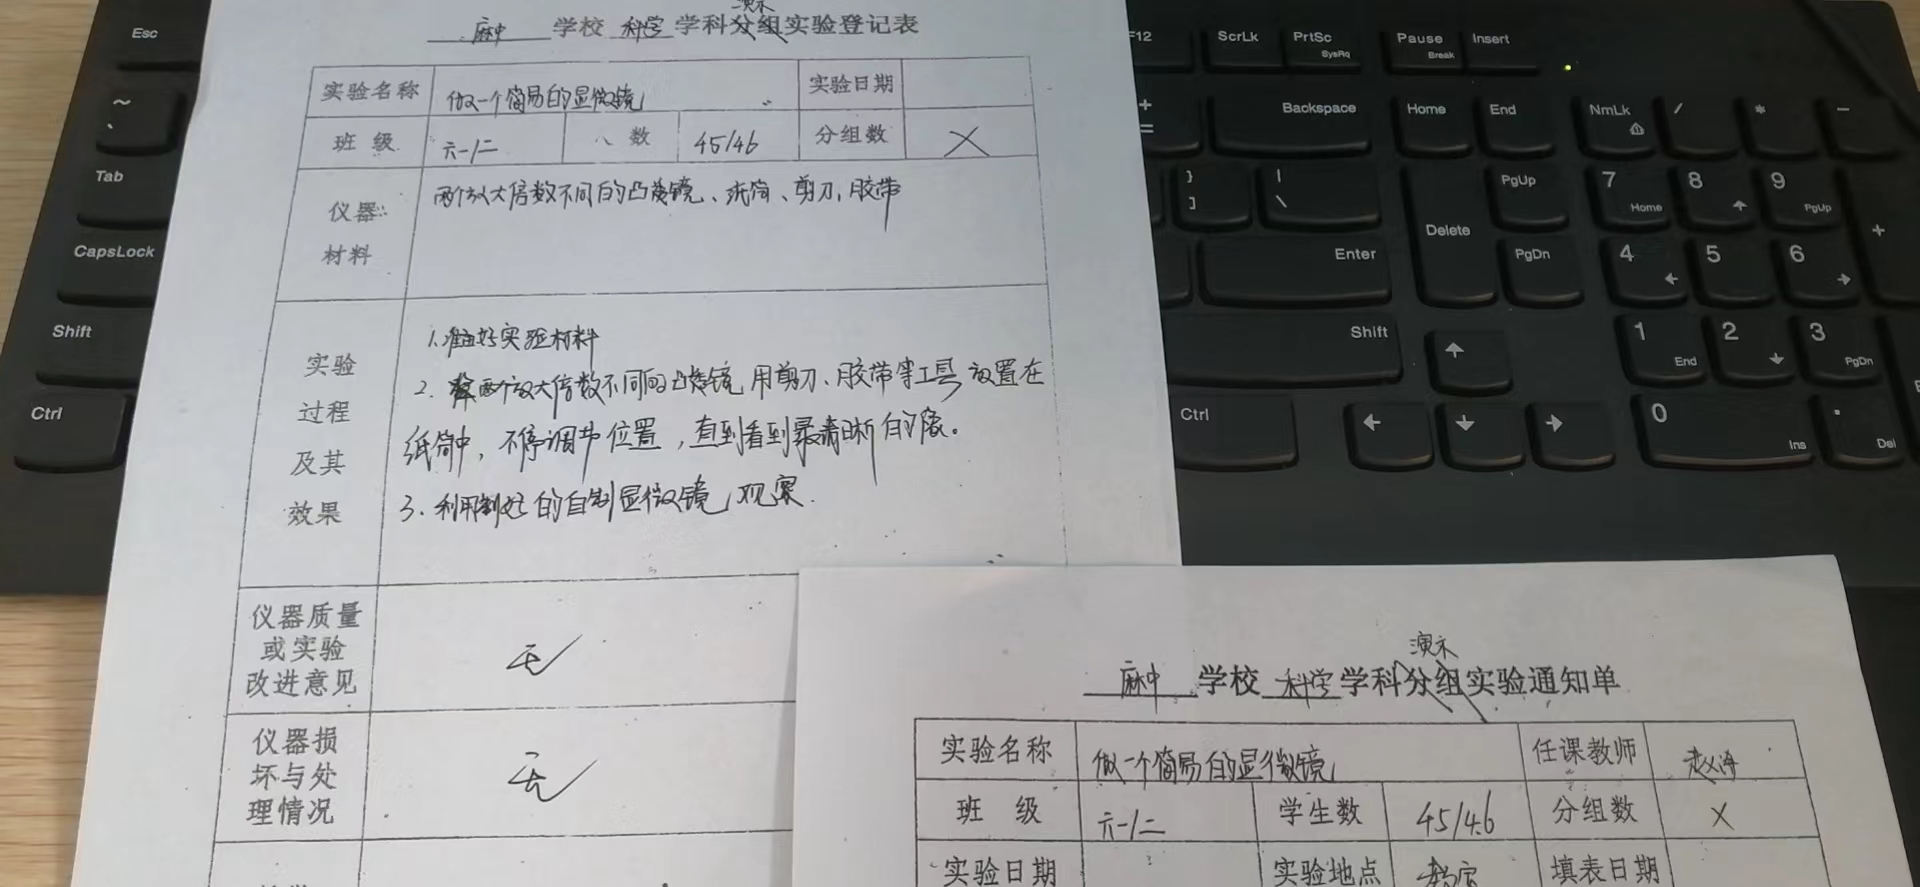 麻中 学校 科学 学科分组实验登记表
演示
实验名称 做一个简易的显微镜 实验日期
班 级 六一/二 人 数 45/46 分组数 X
仪器 材料 两个放大倍数不同的凸透镜、纸筒、剪刀、胶带
实验 过程 及其 效果
1.准备好实验材料
2. 将两个放大倍数不同的凸透镜用剪刀、胶带等工具放置在
纸筒中，不停调节位置，直到看到最清晰的像。
3.利用制好的自制显微镜观察.
仪器质量
或实验
改进意见
无
仪器损
坏与处
理情况
无
演示
麻中 学校 科学 学科分组实验通知单
实验名称 做一个简易的显微镜 任课教师
班 级 六一/二 学生数 45/46 分组数 X
实验日期 实验地点 教室 填表日期
Esc
~ 、
Tab
CapsLock
Shift
Ctrl
F12 ScrLk PrtSc SysRq Pause Break Insert
+ = Backspace Home End NmLk / * -
} ] | \ Delete PgUp 7 Home 8 9 PgUp +
Enter PgDn 4 5 6
Shift 1 End 2 3 PgDn
Ctrl 0 Ins . Del